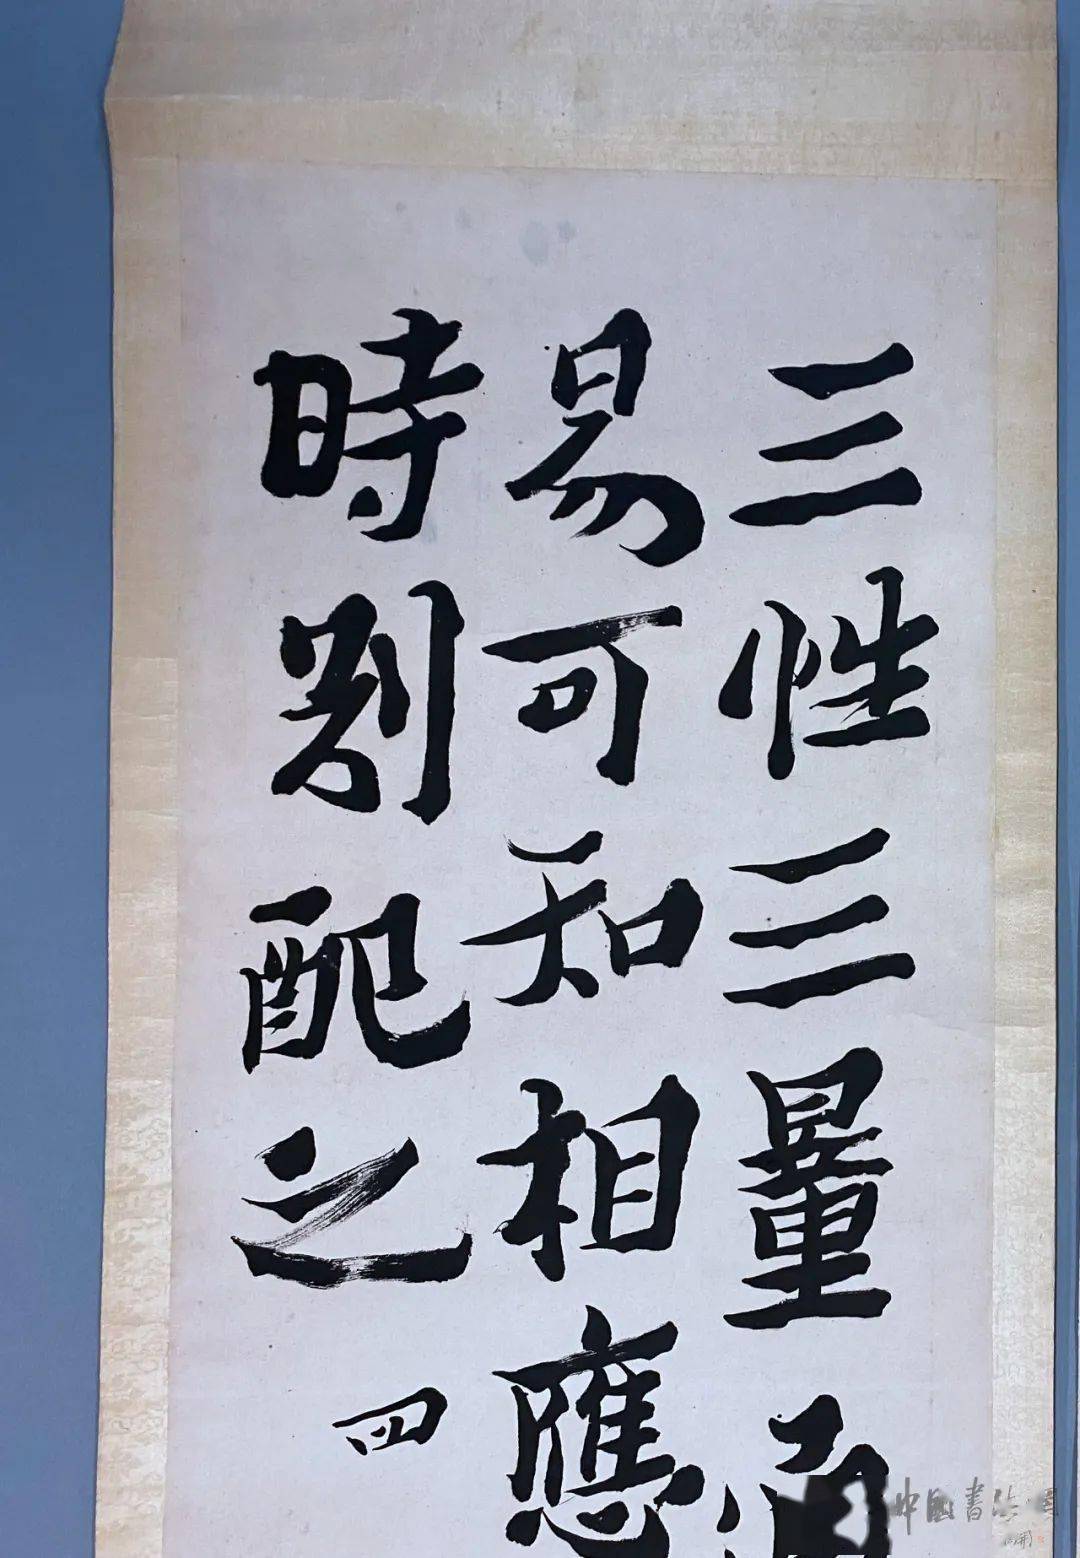 三性三量
易可知相應
時別配之
四
中國書法